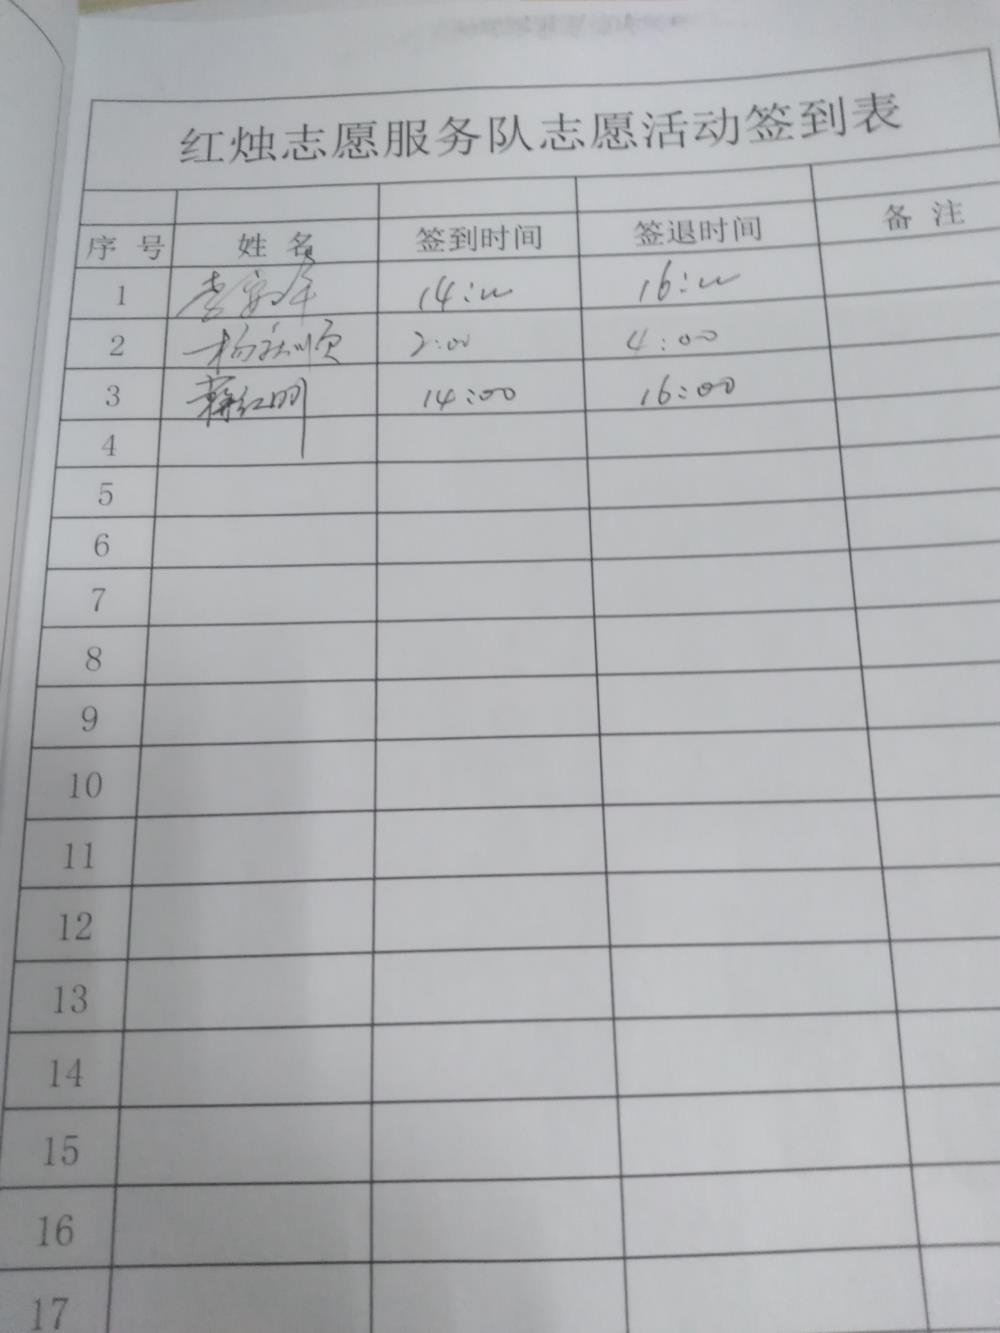 红烛志愿服务队志愿活动签到表
序 号 姓 名 签到时间 签退时间 备 注
1 14:00 16:00
2 杨 顺 2:00 4:00
3 红明 14:00 16:00
4
5
6
7
8
9
10
11
12
13
14
15
16
17